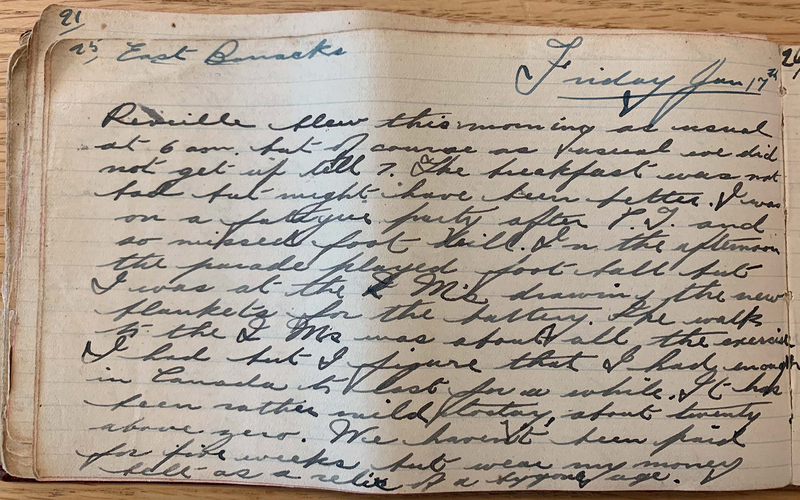 21/
25, East Barracks
Friday Jan 17th
24/
Reveille blew this morning as usual
at 6 am. but of course as usual we did
not get up till 7. The breakfast was not
bad but might have been better. I was
on a fatigue party after P.T. and
so missed foot drill. In the afternoon
the parade played foot ball but
I was at the Q M's drawing the new
blankets for the battery. The walk
to the Q Ms was about all the exercise
I had but I figure that I had enough
in Canada to last for a while. It has
been rather mild today, about twenty
above zero. We haven't been paid
for five weeks but wear my money
belt as a relic of a bygone age.